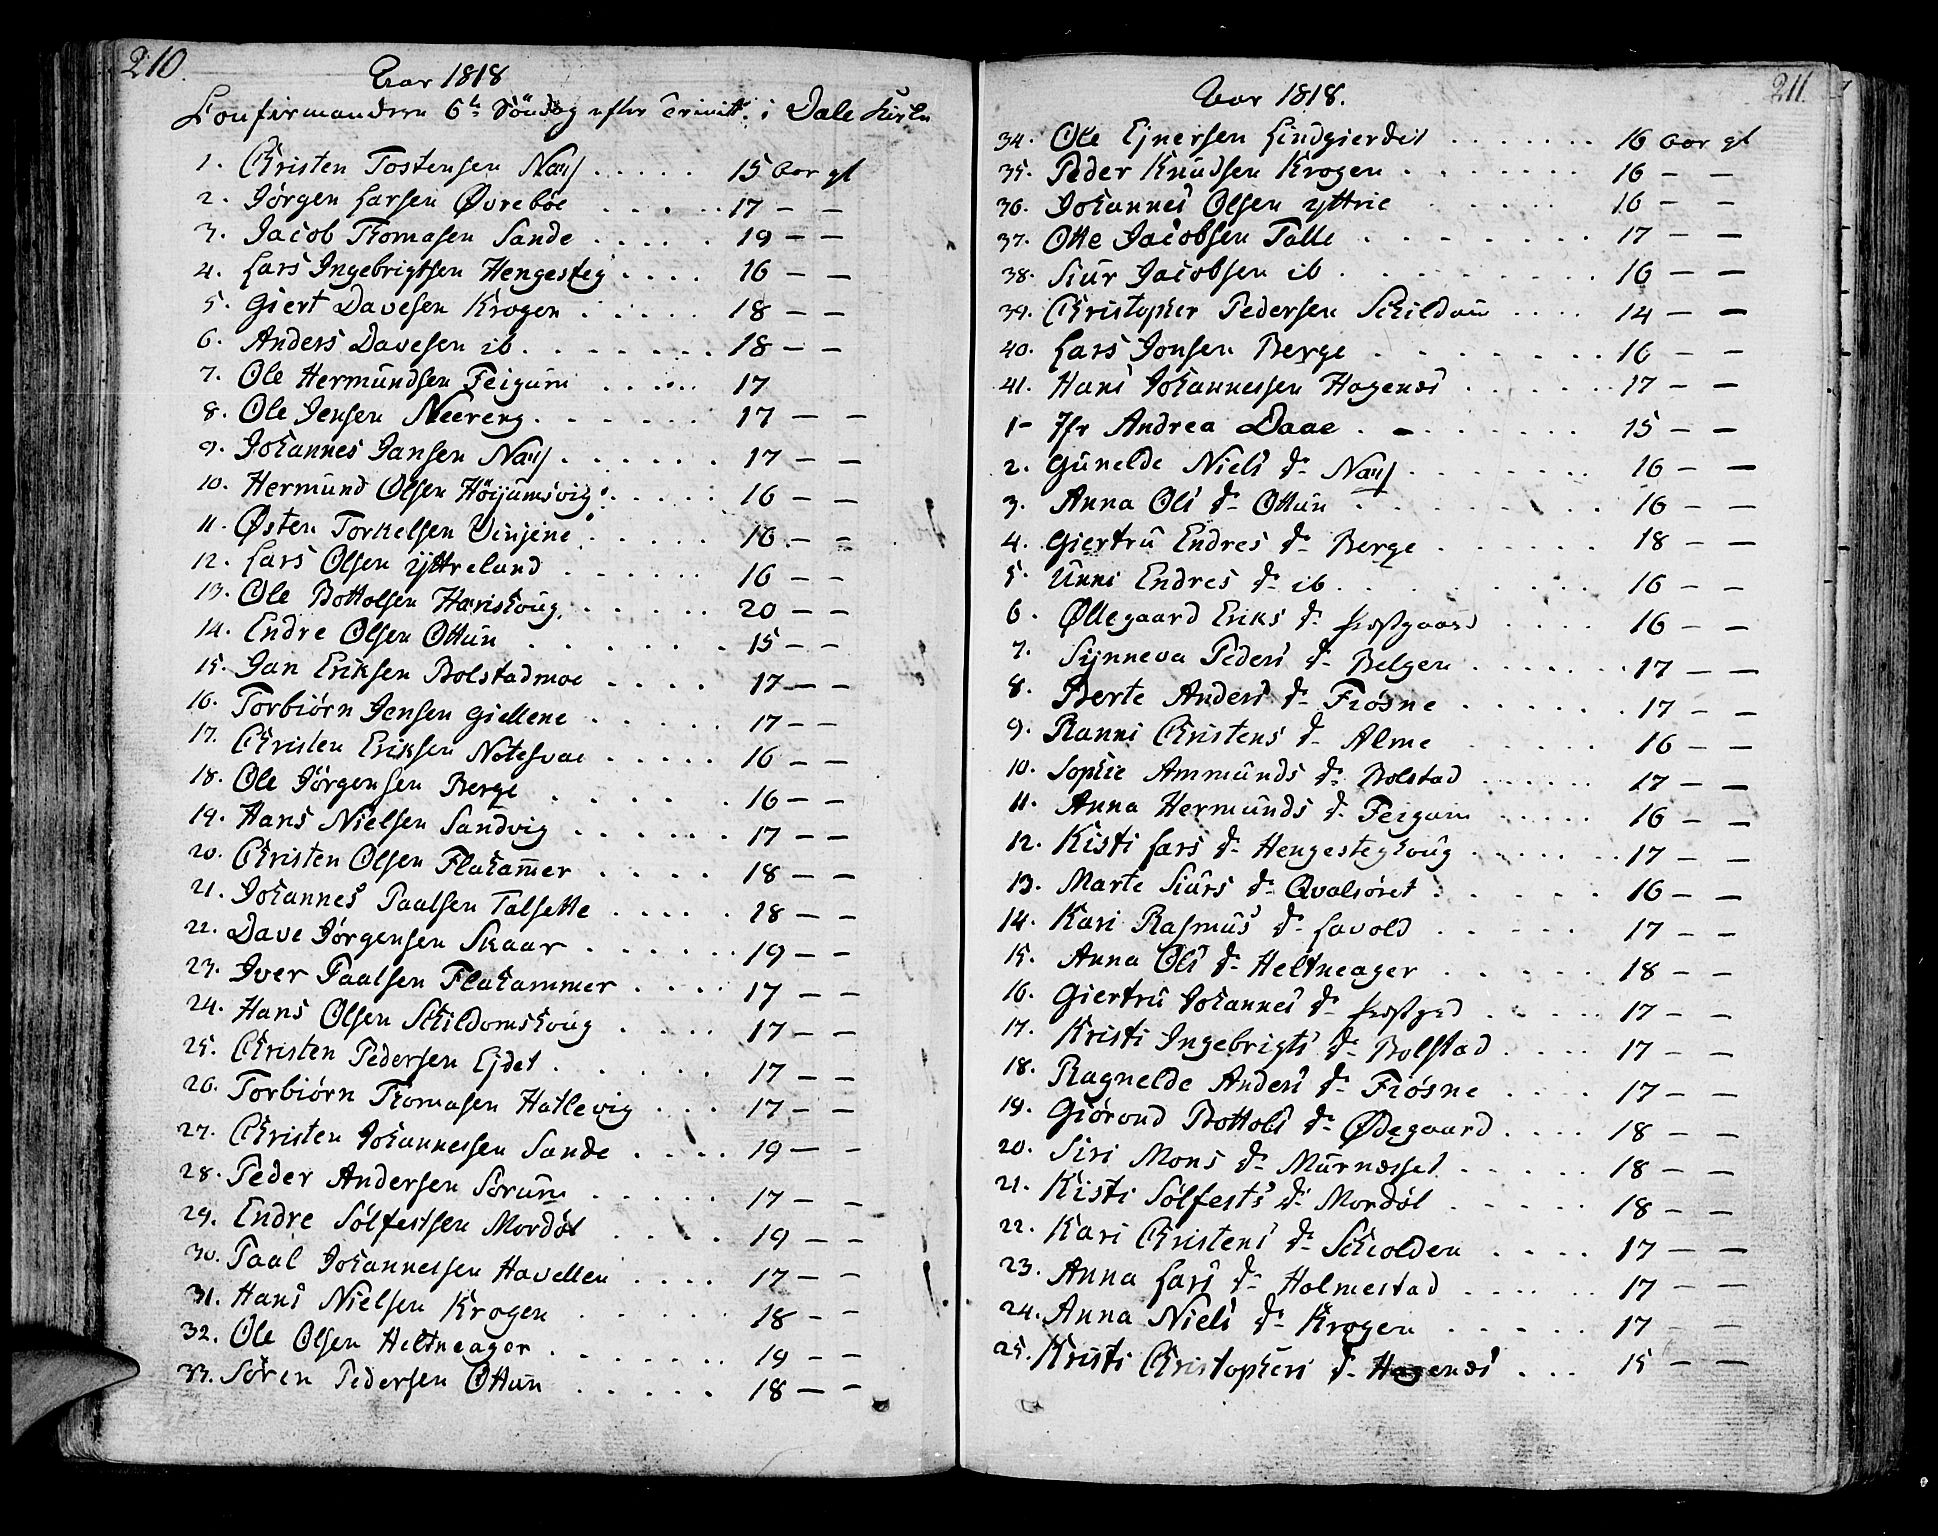 210.
Aar 1818
Confirmanderne 6te Søndag efter Trinit. i Dale Kirke
1. Christen Tostensen Næss ..... 15 Aar gl
2. Jørgen Larsen Øvrebøe ..... 17 — —
3. Jacob Thomasen Sande ..... 19 — —
4. Lars Ingebrigtsen Hengesteg .... 16 — —
5. Giert Davesen Krogen ..... 18 — —
6. Anders Davesen ib. ...... 18 — —
7. Ole Hermundsen Feigum ..... 17
8. Ole Jensen Neereng. ...... 17 — —
9. Johannes Jansen Næss ...... 17 — —
10. Hermund Olsen Høijumsvig ..... 16 — —
11. Østen Torkelsen Vinjene ..... 16 — —
12. Lars Olsen Yttrelund ..... 16 — —
13. Ole Bottolsen Harishoug. ..... 20 — —
14. Endre Olsen Ottun ...... 15 — —
15. Jan Eriksen Bolstadmoe .... 17 — —
16. Torbiørn Jensen Giellene ..... 17 — —
17. Christen Eriksen Notesvae ..... 16 — —
18. Ole Jørgensen Berge ..... 16 — —
19. Hans Nielsen Sandvig ...... 17 — —
20. Christen Olsen Flahamer ..... 18 — —
21. Johannes Paalsen Talsette .... 18 — —
22. Dave Jørgensen Skaar ..... 19 — —
23. Iver Paalsen Flahammer .... 17 — —
24. Hans Olsen Schildomshoug .... 17 — —
25. Christen Pedersen Ejdet ..... 17 — —
26. Torbiørn Thomasen Hatlevig ... 17 — —
27. Christen Johannessen Sande .... 19 — —
28. Peder Andersen Sorum ..... 17 — —
29. Endre Sølfestsen Mordøl .... 19 — —
30. Paal Johannessen Havellen .... 17 — —
31. Hans Nielsen Krogen ..... 18 — —
32. Ole Olsen Heltneager ...... 19 — —
33. Søren Pedersen Ottun ..... 18 — —
211
Aar 1818.
34. Ole Ejnersen Lindgierdet ....... 16 Aar gl
35. Peder Knudsen Krogen ....... 16 — —
36. Johannes Olsen Yttrie ..... 16 — —
37. Otte Jacobsen Talle ....... 17 — —
38. Siur Jacobsen ib ........ 16 — —
39. Christopher Pedersen Schildom .... 14 — —
40. Lars Jonsen Berge ....... 16 — —
41. Hans Johannessen Hagenæs ...... 17 — —
1- Jfr Andrea Daae ....... 15 — —
2. Gunelde Niels d. Næss ....... 16 — —
3. Anna Ols d. Ottun ........ 16 — —
4. Giertru Endres d. Berge ...... 18 — —
5. Unni Endres d. ib ........ 16 — —
6. Øllegaard Eriks d. Præstgaard .... 16 — —
7. Synneva Peders d. Bolgen ...... 17 — —
8. Berte Anders d. Fiøsne ...... 17 — —
9. Ranni Christens d. Alme ..... 16 — —
10. Sophie Ammunds d. Bolstad ...... 17 — —
11. Anna Hermunds d. Feigum ..... 16 — —
12. Kisti Lars d. Hengesteghoug ...... 17 — —
13. Marte Siurs d. Qvalsøret ...... 16 — —
14. Kari Rasmus d. Lavold ..... 17 — —
15. Anna Ols d. Heltneager ..... 18 — —
16. Giertru Johannes d. Præstgrd ..... 17 — —
17. Kristi Ingebrigts d. Bolstad .... 17 — —
18. Ragnelde Anders d. Fiøsne .... 17 — —
19. Giørond Bottols d. Ødegaard .... 18 — —
20. Siri Mons d. Murnæsset ..... 18 — —
21. Kisti Sølfests d. Mordøl ..... 18 — —
22. Kari Christens d. Schiolden .... 17 — —
23. Anna Lars d. Holmestad ...... 17 — —
24. Anna Niels d. Krogen ..... 17 — —
25. Kristi Christophers d. Hagenæs ... 15 — —